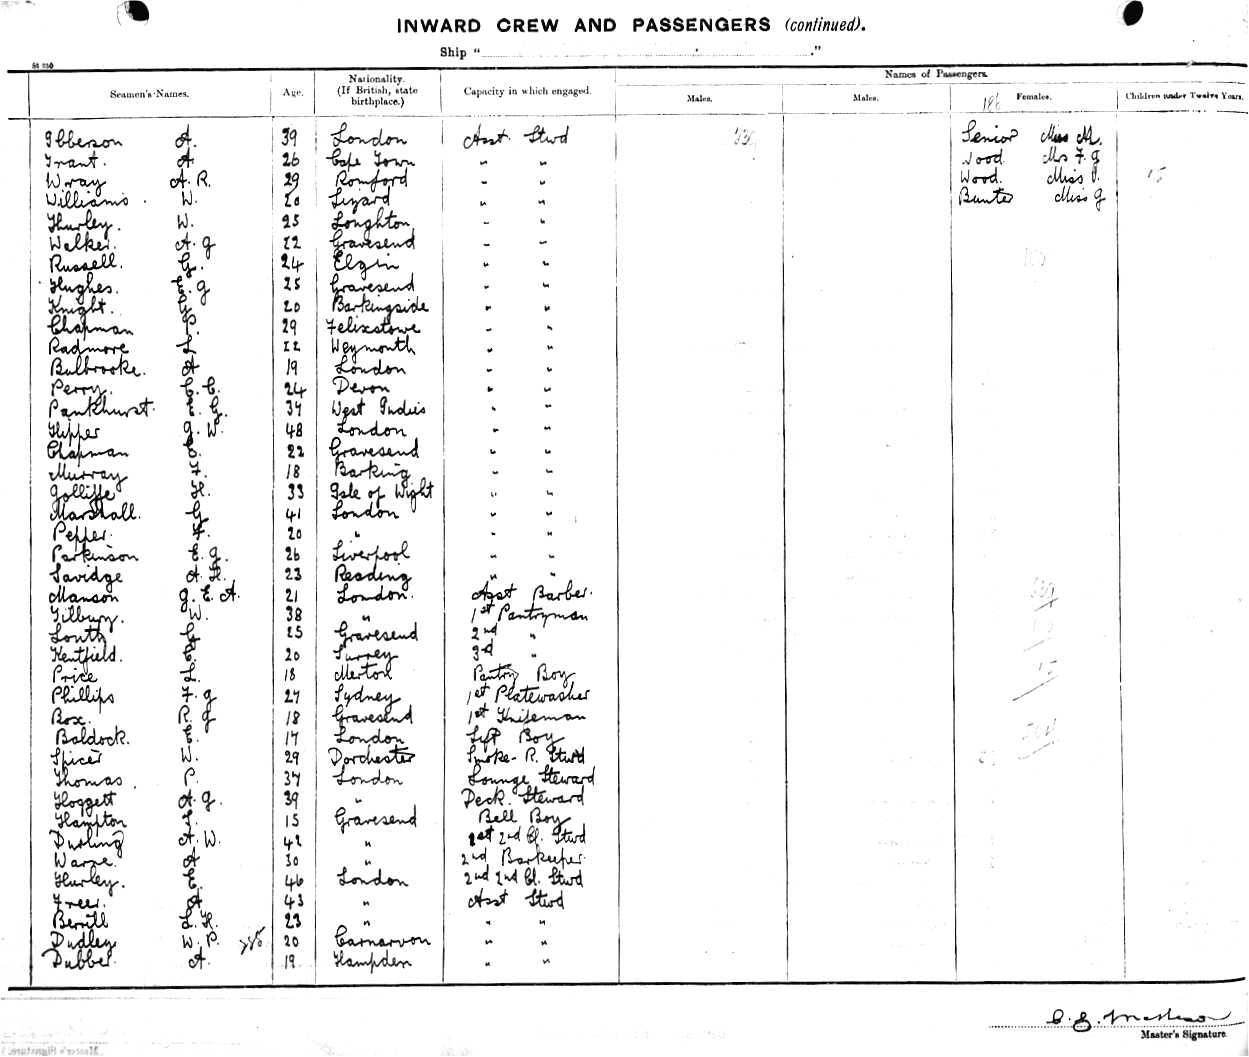 INWARD CREW AND PASSENGERS (continued).
Ship " ."
Seamen's Names. Age. Nationality. (If British, state birthplace.) Capacity in which engaged. Names of Passengers.
Males. Males. Females. Children under Twelve Years.
186
Ibberson A. 39 London Asst Stwd Senior Miss M.
Grant. A 26 Cape Town " " Wood Mrs F. J
Wray A. R. 29 Romford " " Wood. Miss P. 15
Williams. W. 20 Lizard " " Bunter Miss J
Hurley. W. 25 Loughton " "
Walker. A. J 22 Gravesend " "
Russell. G. 24 Elgin " "
Hughes. J 25 Gravesend " "
Knight. G 20 Barkingside " "
Chapman P. 29 Felixstowe " "
Radmore L 22 Weymouth " "
Bulbrooke. A 19 London " "
Perry. C. C. 24 Devon " "
Pankhurst. G. 37 West Indies " "
Flipper J. W. 48 London " "
Chapman C. 22 Gravesend " "
Murray F. 18 Barking " "
Jolliffe H. 33 Isle of Wight " "
Marshall. G 41 London " "
Pepper. F. 20 " " "
Parkinson E. J. 26 Liverpool " "
Savidge A. H. 23 Reading " "
Manson J. E. A. 21 London. Asst Barber.
Tilbury. W. 38 " 1st Pantryman
South G 25 Gravesend 2nd "
Kentfield. C. 20 Surrey 3rd "
Price L. 18 Merton Pantry Boy
Phillips F. J 27 Sydney 1st Platewasher
Box. R. J 18 Gravesend 1st Knifeman
Baldock. C. 17 London Lift Boy
Spicer W. 29 Dorchester Smoke-R. Stwd
Thomas. P. 37 London Lounge Steward
Hoggett A. J. 39 " Deck Steward
Hampton 15 Gravesend Bell Boy
Durling A. W. 42 " 1st 2nd Cl. Stwd
Warne. A 30 " 2nd Barkeeper
Hurley. C. 46 London 2nd 2nd Cl. Stwd
Freer. A 43 " Asst Stwd
Berrill L. H. 23 " " "
Dudley W. P. 20 Carnarvon " "
Dubber. A. 19 Hampden " "
Master's Signature.